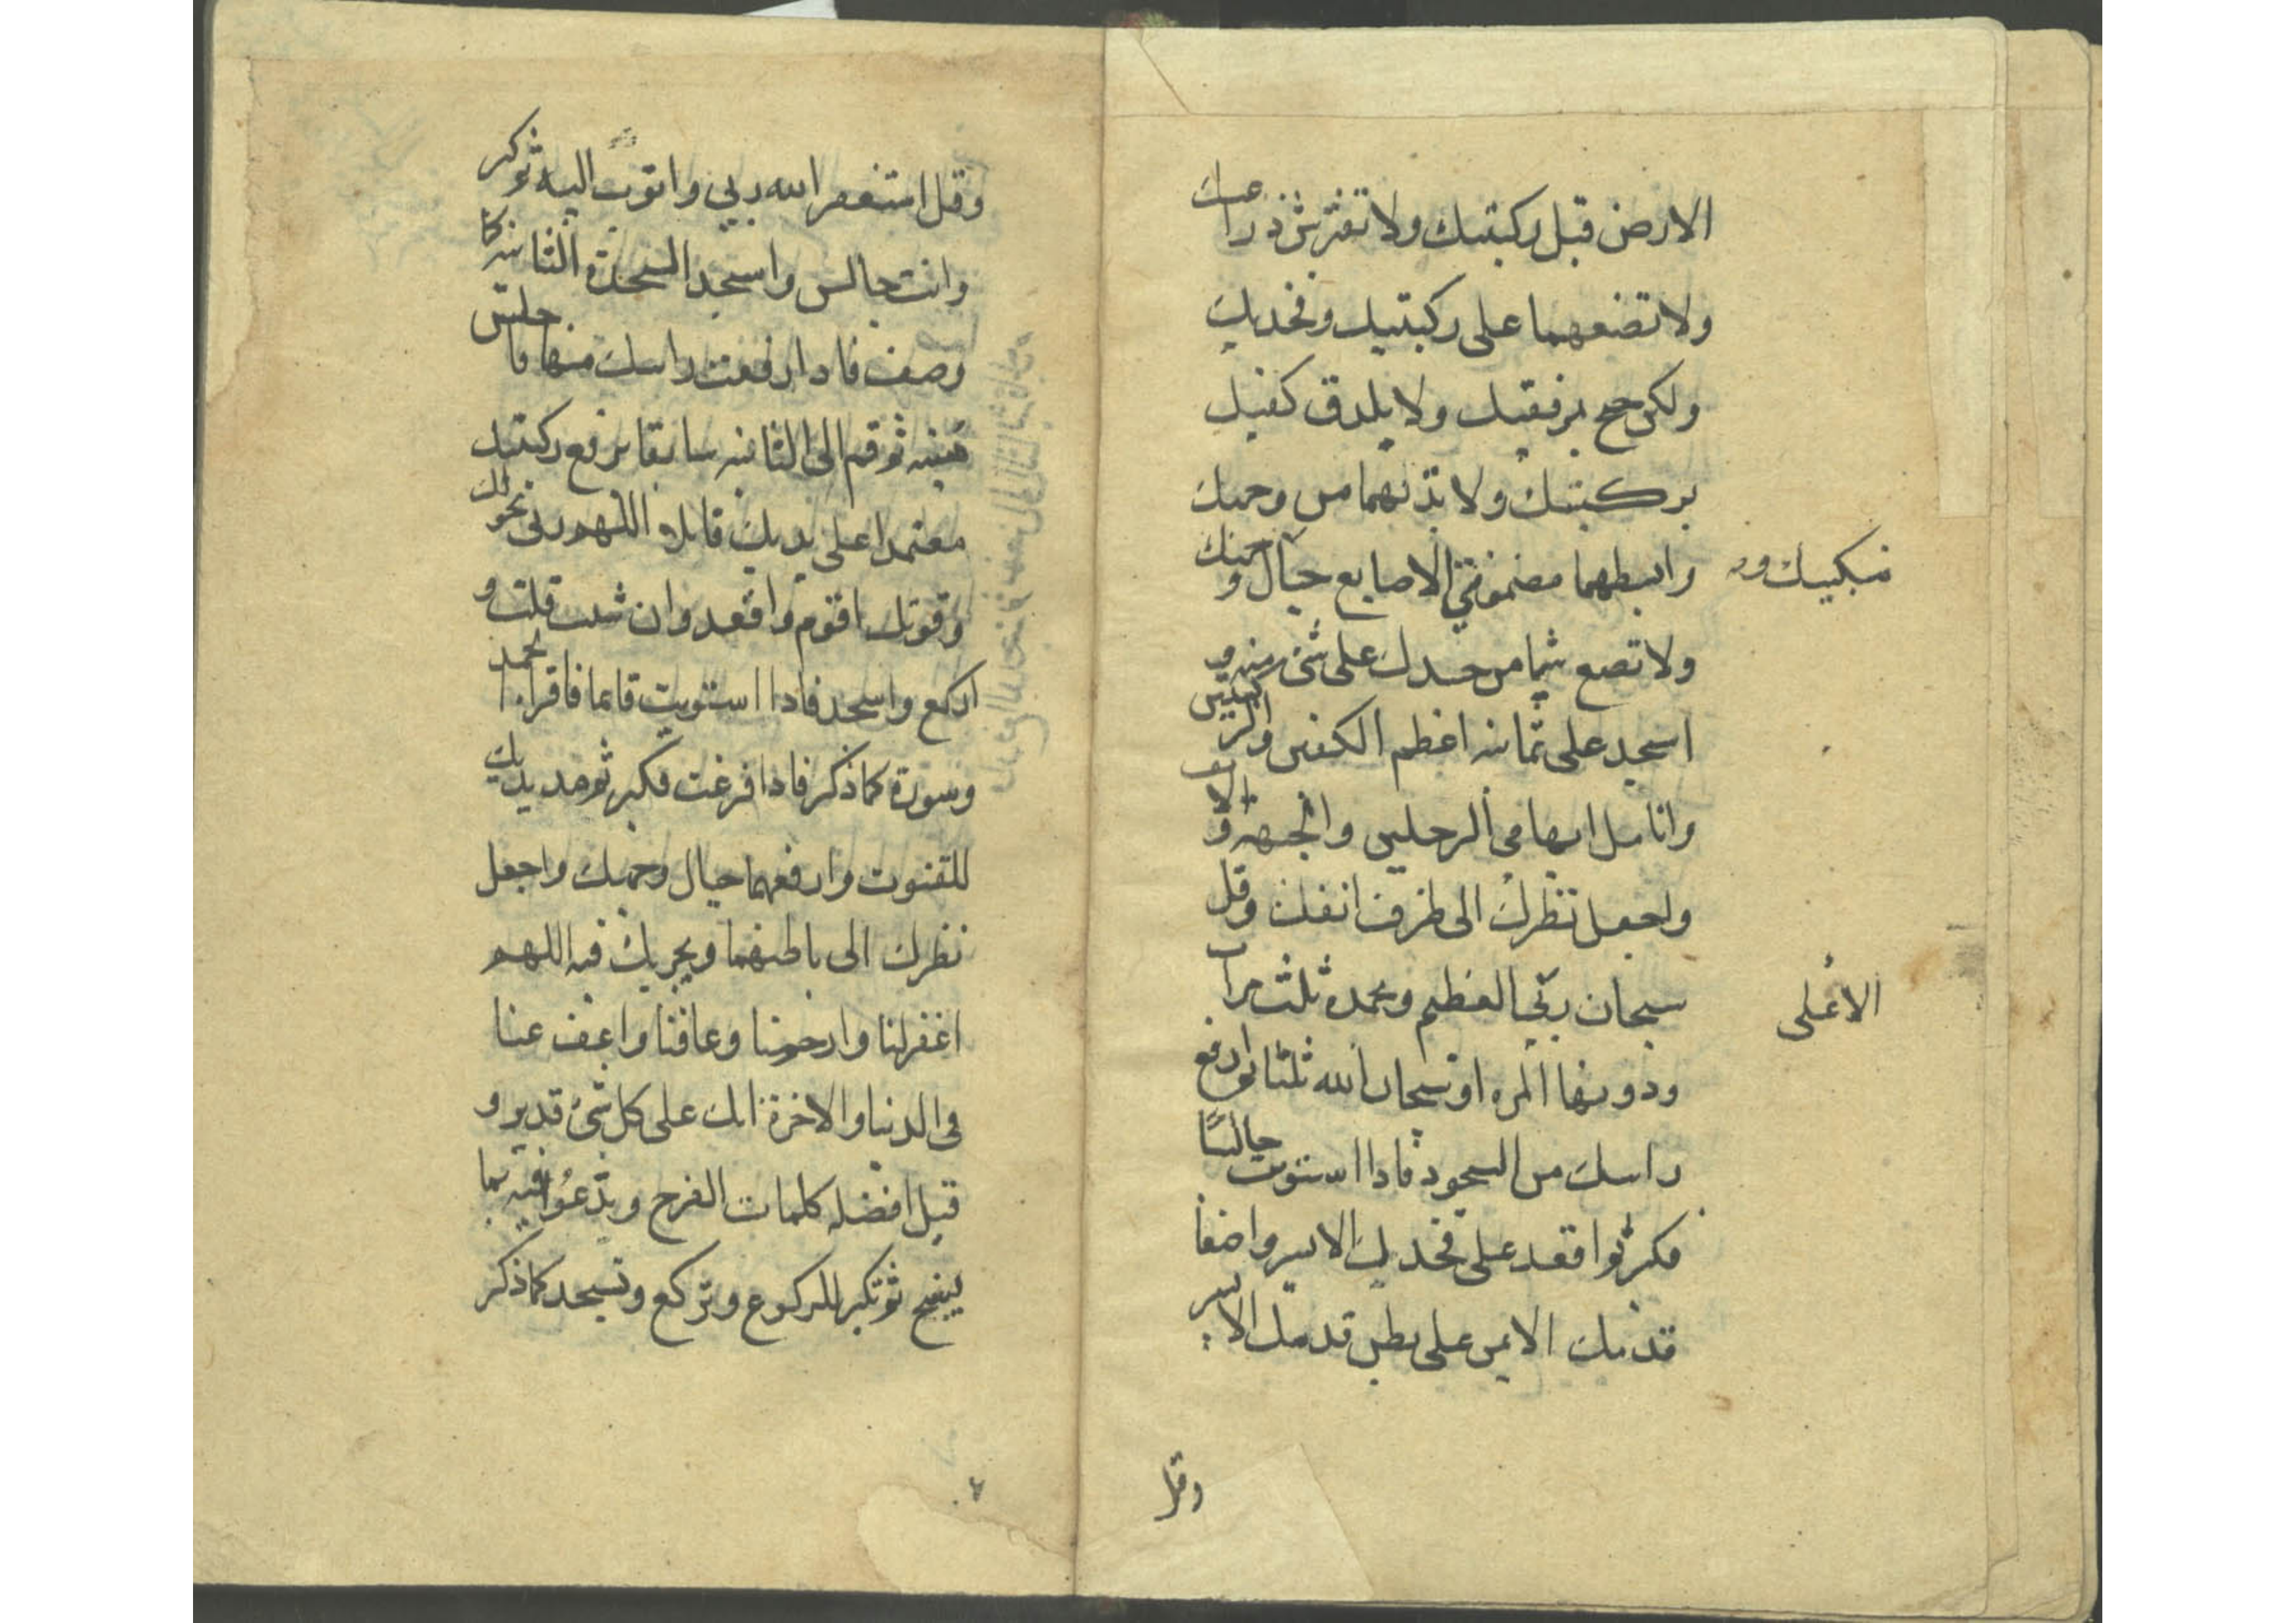 الارض قبل ركبتيك ولا تفترش ذراعيك
ولا تضعهما على ركبتيك وفخديك
ولكن جنح بمرفقيك ولا يلدق كفيك
بركبتيك ولا تدنهما من وجهك
وابسطهما مضمومتي الاصابع حيال وجهك
منكبيك و
ولا تضع شيئا من جسدك على شئ منه و
اسجد على ثمانيه اعظم الكفين والركبتين
وانامل ابهامي الرجلين والجبهة والانف
واجعل نظرك الى طرف انفك وقل
سبحان ربي العظيم وبحمده ثلث مرات
الاعلى
ودونها المره او سبحان الله ثلثا ثم ارفع
راسك من السجود فاذا استويت جالسًا
فكبر ثم اقعد على فخديك الايسر واضعا
قدميك الايمن على بطن قدمك الايسر
وقل
وقل استغفر الله ربي واتوب اليه ثم كبر
وانت جالس واسجد السجدة الثانيه كما
وصف فاذا رفعت راسك منها فاجلس
هنيئه ثم قم الى الثانيه سابقا برفع ركبتيك
معتمدا على يديك قائلا اللهم ربي بحولك
وقوتك اقوم واقعد وان شئت قلت و
اركع واسجد فاذا استويت قائما فاقراء الحمد
وسورة كما ذكر فاذا فرغت فكبر ثم مد يديك
للقنوت وارفعهما حيال وجهك واجعل
نظرك الى باطنهما ويجزيك فيه اللهم
اغفر لنا وارحمنا وعافنا واعف عنا
فى الدنيا والاخرة انك على كل شئ قدير و
قيل افضله كلمات الفرج ويدعوا فيه بما
يسنح ثم تكبر للركوع وتركع وتسجد كما ذكر